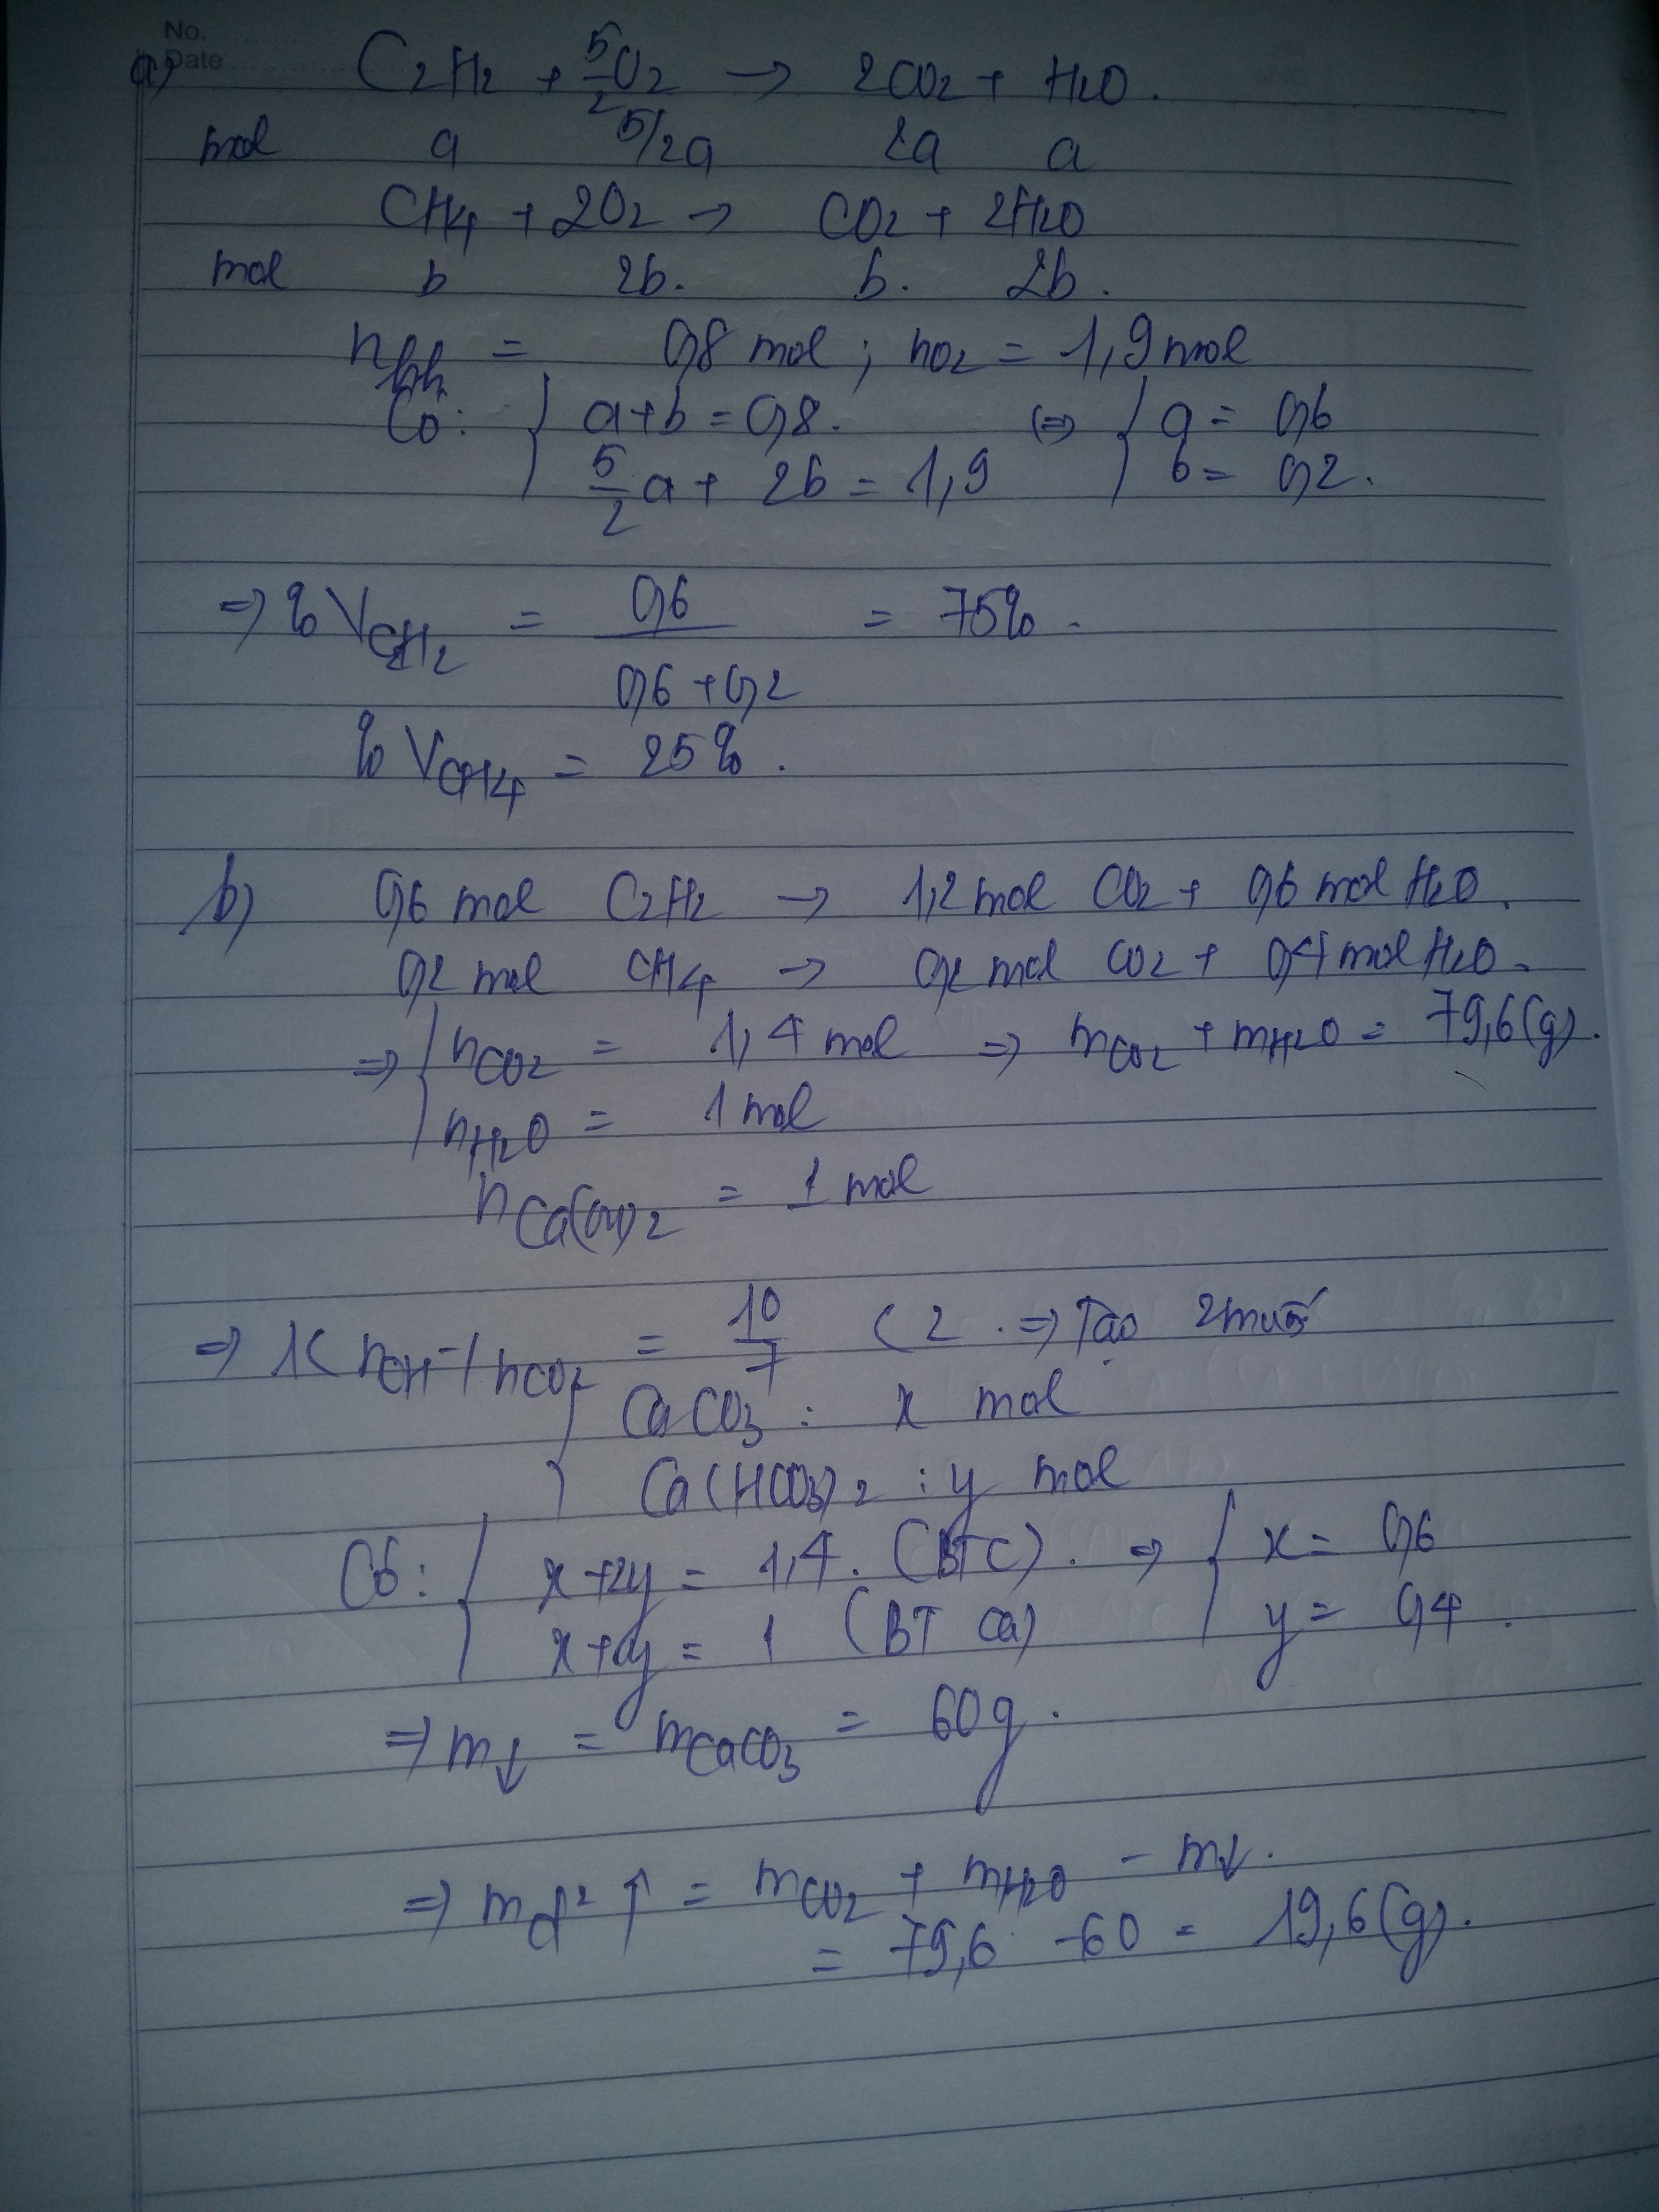 No.
Date
a) C2H2 + 5/2 O2 → 2CO2 + H2O.
mol a 5/2a 2a a
CH4 + 2O2 → CO2 + 2H2O
mol b 2b. b. 2b.
nhh = 0,8 mol ; nO2 = 1,9 mol
Có: { a+b = 0,8. (=> { a = 0,6
5/2 a + 2b = 1,9 b = 0,2.
=> % VC2H2 = 0,6 / 0,6+0,2 = 75%.
% VCH4 = 25%.
b) 0,6 mol C2H2 → 1,2 mol CO2 + 0,6 mol H2O.
0,2 mol CH4 → 0,2 mol CO2 + 0,4 mol H2O.
=> { nCO2 = 1,4 mol => mCO2 + mH2O = 79,6(g).
nH2O = 1 mol
nCa(OH)2 = 1 mol
=> 1< nOH-/nCO2 = 10/7 < 2 . => Tạo 2 muối
} CaCO3 : x mol
Ca(HCO3)2 : y mol
Có: { x+2y = 1,4. (BTC). => { x = 0,6
x+y = 1 (BT Ca) y = 0,4.
=> m↓ = mCaCO3 = 60g.
=> md2 ↑ = mCO2 + mH2O - m↓.
= 79,6 - 60 = 19,6(g).